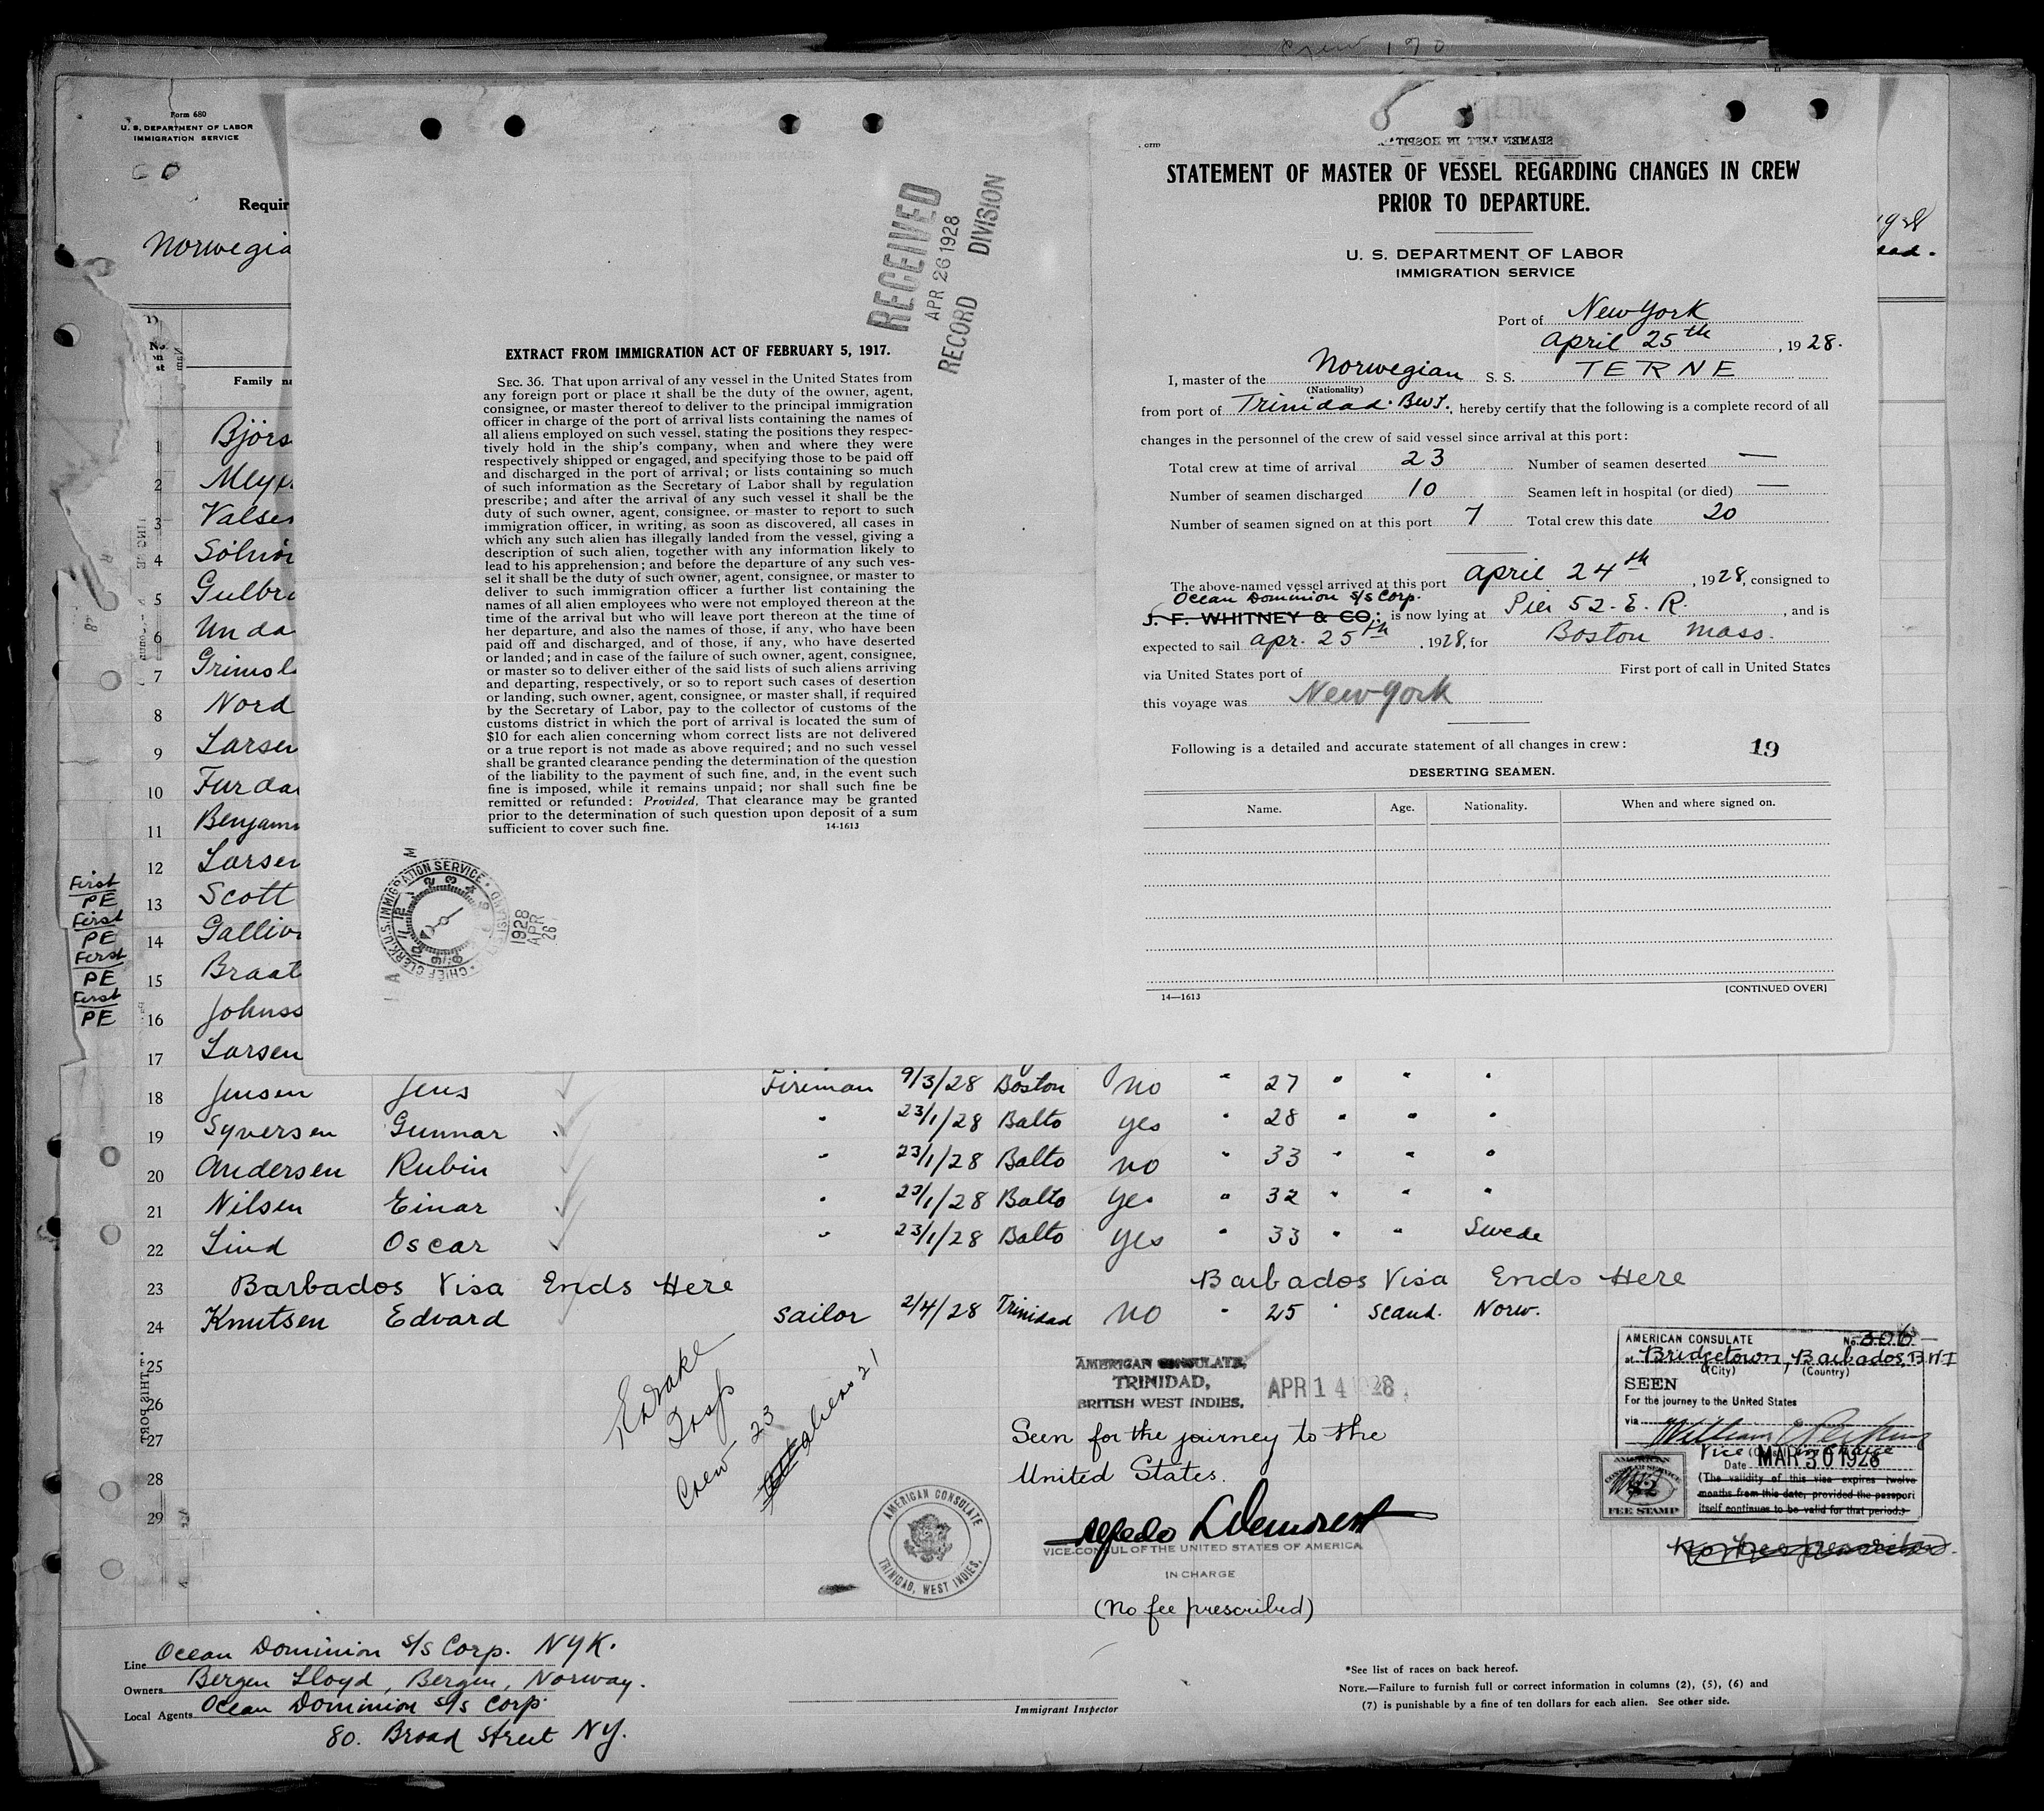 Crew 190
Form 680
U. S. DEPARTMENT OF LABOR
IMMIGRATION SERVICE
Requir
Norwegia
Family na
1 Björs
2 Meye
3 Valse
4 Solno
5 Gulbr
6 Unda
7 Grimsl
8 Nord
9 Larsen
10 Furda
11 Benjam
12 Larsen
First PE 13 Scott
First PE 14 Galliv
First PE 15 Braat
First PE 16 Johnss
17 Larsen
18 Jensen Jens Fireman 9/3/28 Boston No " 27 " " "
19 Syversen Gunnar " 23/1/28 Balto yes " 28 " " "
20 Andersen Rubin " 23/1/28 Balto no " 33 " " "
21 Nilsen Einar " 23/1/28 Balto yes " 32 " " "
22 Lind Oscar " 23/1/28 Balto yes " 33 " " Swede
23 Barbados Visa Ends Here Barbados Visa Ends Here
24 Knutsen Edvard Sailor 2/4/28 Trinidad No " 25 " Scand. Norw.
25
26
27
28
29
30
THIS PORT
Crew 23
aliens 21
AMERICAN CONSULATE,
TRINIDAD,
BRITISH WEST INDIES.
APR 14 1928
Seen for the journey to the
United States.
VICE-CONSUL OF THE UNITED STATES OF AMERICA
IN CHARGE
(No fee prescribed)
AMERICAN CONSULATE
TRINIDAD, WEST INDIES.
AMERICAN CONSULATE No. 306
at Bridgetown, Barbados, BWI
(City) (Country)
SEEN
For the journey to the United States
via
Date MAR 30 1928
(The validity of this visa expires twelve
months from this date, provided the passport
itself continues to be valid for that period.)
AMERICAN
CONSULAR SERVICE
$2
FEE STAMP
No fee prescribed.
Line Ocean Dominion S/S Corp. NYK.
Owners Bergen Lloyd, Bergen, Norway.
Local Agents Ocean Dominion S/S Corp
80. Broad Street NY.
Immigrant Inspector
*See list of races on back hereof.
NOTE.—Failure to furnish full or correct information in columns (2), (5), (6) and
(7) is punishable by a fine of ten dollars for each alien. See other side.
RECEIVED
APR 26 1928
RECORD DIVISION
EXTRACT FROM IMMIGRATION ACT OF FEBRUARY 5, 1917.
SEC. 36. That upon arrival of any vessel in the United States from
any foreign port or place it shall be the duty of the owner, agent,
consignee, or master thereof to deliver to the principal immigration
officer in charge of the port of arrival lists containing the names of
all aliens employed on such vessel, stating the positions they respec-
tively hold in the ship's company, when and where they were
respectively shipped or engaged, and specifying those to be paid off
and discharged in the port of arrival; or lists containing so much
of such information as the Secretary of Labor shall by regulation
prescribe; and after the arrival of any such vessel it shall be the
duty of such owner, agent, consignee, or master to report to such
immigration officer, in writing, as soon as discovered, all cases in
which any such alien has illegally landed from the vessel, giving a
description of such alien, together with any information likely to
lead to his apprehension; and before the departure of any such ves-
sel it shall be the duty of such owner, agent, consignee, or master to
deliver to such immigration officer a further list containing the
names of all alien employees who were not employed thereon at the
time of the arrival but who will leave port thereon at the time of
her departure, and also the names of those, if any, who have been
paid off and discharged, and of those, if any, who have deserted
or landed; and in case of the failure of such owner, agent, consignee,
or master so to deliver either of the said lists of such aliens arriving
and departing, respectively, or so to report such cases of desertion
or landing, such owner, agent, consignee, or master shall, if required
by the Secretary of Labor, pay to the collector of customs of the
customs district in which the port of arrival is located the sum of
$10 for each alien concerning whom correct lists are not delivered
or a true report is not made as above required; and no such vessel
shall be granted clearance pending the determination of the question
of the liability to the payment of such fine, and, in the event such
fine is imposed, while it remains unpaid; nor shall such fine be
remitted or refunded: Provided, That clearance may be granted
prior to the determination of such question upon deposit of a sum
sufficient to cover such fine. 14-1613
U.S. IMMIGRATION SERVICE
CHIEF CLERK
1928
APR
26
SEAMEN LEFT IN HOSPITA
STATEMENT OF MASTER OF VESSEL REGARDING CHANGES IN CREW
PRIOR TO DEPARTURE.
U. S. DEPARTMENT OF LABOR
IMMIGRATION SERVICE
Port of New York
April 25th, 1928.
I, master of the Norwegian S. S. TERNE
(Nationality)
from port of Trinidad. BWI., hereby certify that the following is a complete record of all
changes in the personnel of the crew of said vessel since arrival at this port:
Total crew at time of arrival 23 Number of seamen deserted —
Number of seamen discharged 10 Seamen left in hospital (or died) —
Number of seamen signed on at this port 7 Total crew this date 20
The above-named vessel arrived at this port April 24th, 1928, consigned to
Ocean Dominion S/S Corp.
J. F. WHITNEY & CO.; is now lying at Pier 52. E. R., and is
expected to sail Apr. 25th, 1928, for Boston Mass.
via United States port of First port of call in United States
this voyage was New York
Following is a detailed and accurate statement of all changes in crew: 19
DESERTING SEAMEN.
Name. Age. Nationality. When and where signed on.
14—1613 [CONTINUED OVER]